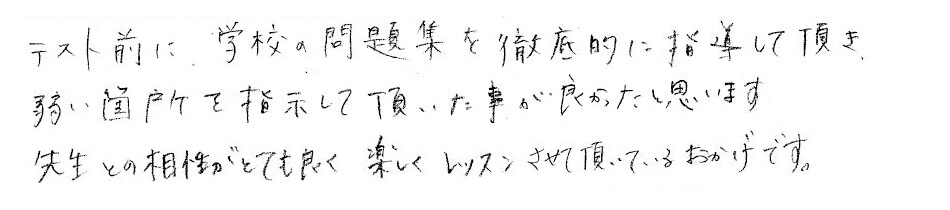 テスト前に、学校の問題集を徹底的に指導して頂き、
弱い箇所を指示して頂いた事が良かったと思います
先生との相性がとても良く 楽しくレッスンさせて頂いているおかげです。